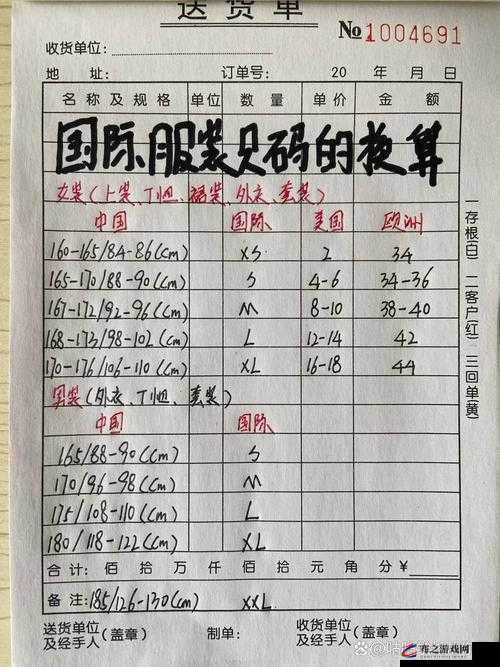 送货单
№1004691
收货单位:
地 址: 订单号: 20 年 月 日
名称及规格 单位 数量 单价 金额
国际服装尺码的换算
女装(上装、T恤、裙装、外衣、套装)
中国 国际 美国 欧洲
160-165/84-86(cm) XS 2 34
165-170/88-90(cm) S 4-6 34-36
167-172/92-96(cm) M 8-10 38-40
168-173/98-102(cm) L 12-14 42
170-176/106-110(cm) XL 16-18 44
男装(外衣、T恤、套装)
中国 国际
165/88-90(cm) S
170/96-98(cm) M
175/108-110(cm) L
180/118-122(cm) XL
合计: 佰 拾 万 仟 佰 拾 元 角 分 ¥
备注: 185/126-130(cm) XXL
送货单位及经手人(盖章) 制单: 收货单位及经手人
一存根(白) 二客户(红) 三回单(黄)
寒之游戏网